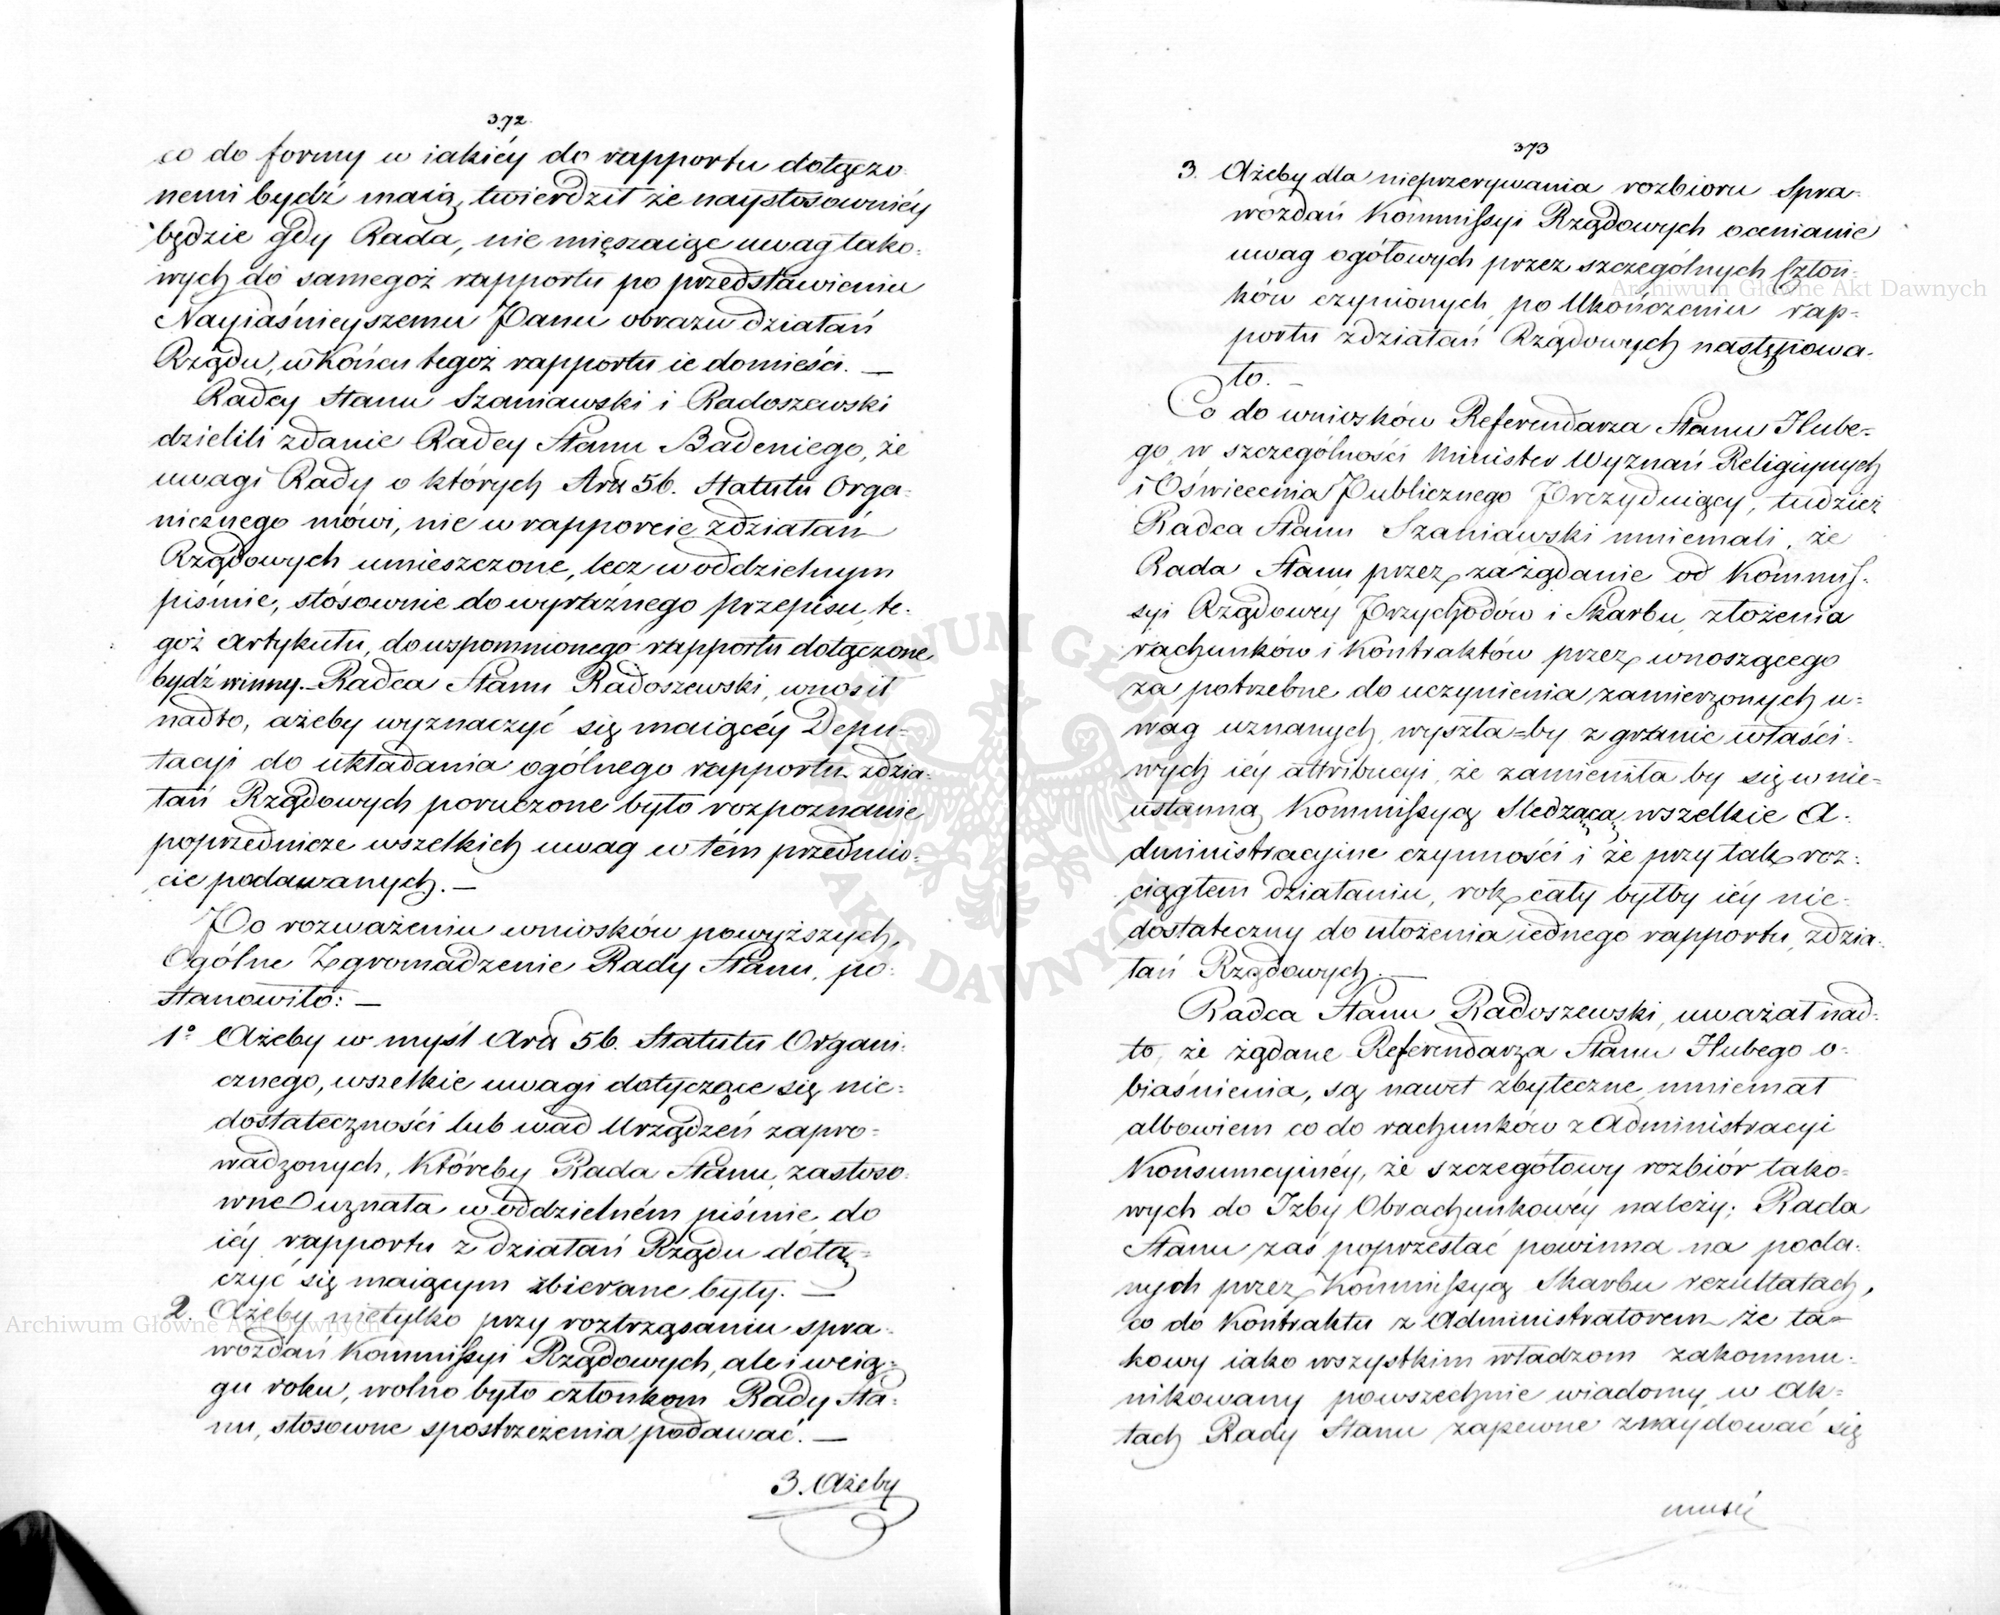 372.
co do formy w iakiéy do rapportu dołączo-
nemi bydź maią, twierdził że naystosowniéy
będzie gdy Rada, nie mięszaiąc uwag tako-
wych do samegoż rapportu po przedstawieniu
Nayiaśnieyszemu Panu obrazu działań
Rządu, w końcu tegoż rapportu ie domieści. —
Radcy Stanu Szaniawski i Radoszewski
dzielili zdanie Radcy Stanu Badeniego, że
uwagi Rady o których Artt 56. Statutu Orga-
nicznego mówi, nie w rapporcie z działań
Rządowych umieszczone, lecz w oddzielnym
piśmie, stósownie do wyraźnego przepisu te-
goż artykułu, do wspomnionego rapportu dołączone
bydź winny. – Radca Stanu Radoszewski, wnosił
nadto, ażeby wyznaczyć się maiącéy Depu-
tacyi do układania ogólnego rapportu z dzia-
łań Rządowych poruczone było rozpoznanie
poprzednicze wszelkich uwag w tém przedmio-
cie podawanych. —
Po rozważeniu wniosków powyższych,
Ogólne Zgromadzenie Rady Stanu, po-
stanowiło: —
1º Ażeby w myśl Artt 56. Statutu Organi-
cznego, wszelkie uwagi dotyczące się nie-
dostateczności lub wad Urządzeń zapro-
wadzonych, któreby Rada Stanu, zastoso-
wne uznała w oddzielném piśmie do
iéy rapportu z działań Rządu dołą-
czyć się maiącym zbierane były. —
2. Ażeby nietylko przy roztrząsaniu spra-
wozdań Kommissyi Rządowych, ale i w cią-
gu roku, wolno było członkom Rady Sta-
nu, stósowne spostrzeżenia podawać. —
3. Ażeby
373
3. Ażeby dla nieprzerywania rozbioru Spra-
wozdań Kommissyi Rządowych ocenianie
uwag ogółowych przez szczególnych Człon-
ków czynionych, po Ukończeniu rap-
portu z działań Rządowych następowa-
ło. —
Co do wniosków Referendarza Stanu Hube-
go, w szczególności Minister Wyznań Religiynych
i Oświecenia Publicznego Prezyduiący, tudzież
Radca Stanu Szaniawski mniemali, że
Rada Stanu przez zażądanie od Kommis-
syi Rządowéy Przychodów i Skarbu, złożenia
rachunków i kontraktów przez wnoszącego
za potrzebne do uczynienia zamierzonych u-
wag uznanych, wyszła=by z granic właści-
wych iéy attribucyi, że zamieniła by się w nie-
ustanną Kommissyą Śledzącą wszelkie A-
dministracyine czynności i że przy tak roz-
ciągłem działaniu, rok cały byłby iéy nie-
dostateczny do ułożenia iednego rapportu, z dzia-
łań Rządowych. —
Radca Stanu Radoszewski, uważał nad-
to, że żądane Referendarza Stanu Hubego o-
biaśnienia, są nawet zbyteczne, mniemał
albowiem co do rachunków z Administracyi
Konsumcyinéy, że szczegółowy rozbiór tako-
wych do Izby Obrachunkowéy należy; Rada
Stanu zaś poprzestać powinna na poda-
nych przez Kommissyą Skarbu rezultatach,
co do Kontraktu z Administratorem że ta-
kowy iako wszystkim władzom zakommu-
nikowany powszechnie wiadomy, w Ak-
tach Rady Stanu zapewne znaydować się
musi
Archiwum Główne Akt Dawnych
Archiwum Główne Akt Dawnych
ARCHIWUM GŁÓWNE
AKT DAWNYCH